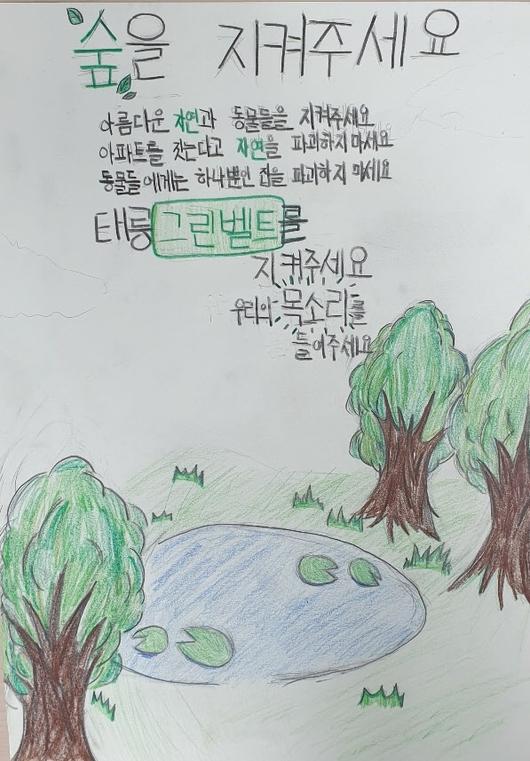 숲을 지켜주세요
아름다운 자연과 동물들을 지켜주세요
아파트를 짓는다고 자연을 파괴하지 마세요
동물들에게는 하나뿐인 집을 파괴하지 마세요
태릉그린벨트를
지켜주세요
우리의 목소리를
들어주세요